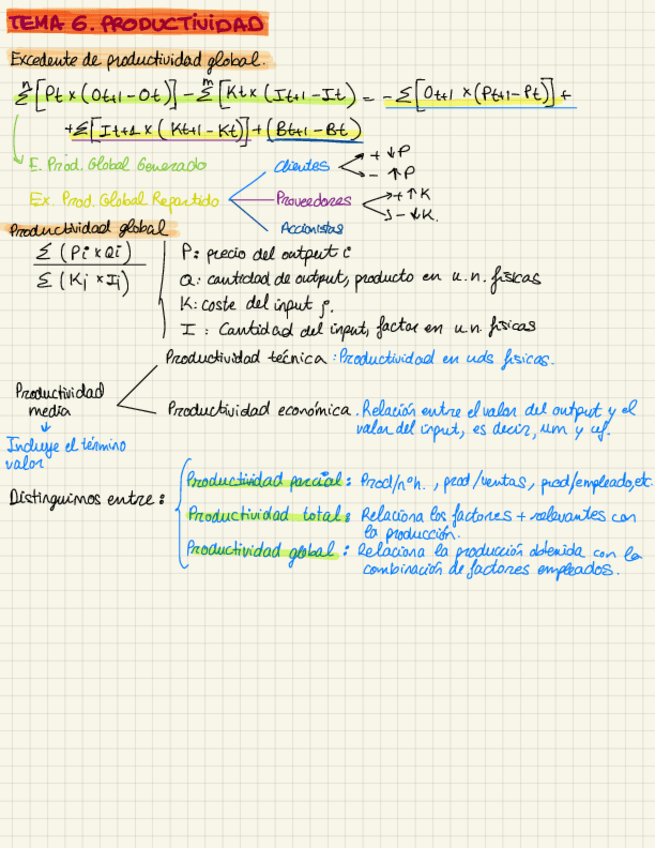 TEMA 6. PRODUCTIVIDAD
Excedente de productividad global.
n Σ [Pt x (Ot+1 - Ot)] - m Σ [Kt x (It+1 - It) = - Σ [Ot+1 x (Pt+1 - Pt)] +
+ Σ [It+1 x (Kt+1 - Kt)] + (Bt+1 - Bt)
E. Prod. Global Generado
Ex. Prod. Global Repartido
Clientes
+ ↓P
- ↑P
Proveedores
+ ↑K
- ↓K.
Accionistas
Productividad global
Σ (Pi x Qi)
Σ (Kj x Ij)
P: precio del output i
Q: cantidad de output, producto en u.n. físicas
K: coste del input j.
I : Cantidad del input, factor en u.n. físicas
Productividad media
↓
Incluye el término valor
Productividad técnica : Productividad en uds físicas.
Productividad económica . Relación entre el valor del output y el
valor del input, es decir, um y uf.
Distinguimos entre :
Productividad parcial : Prod/nºh. , prod/ventas, prod/empleado, etc.
Productividad total : Relaciona los factores + relevantes con
la producción.
Productividad global : Relaciona la producción obtenida con la
combinación de factores empleados.